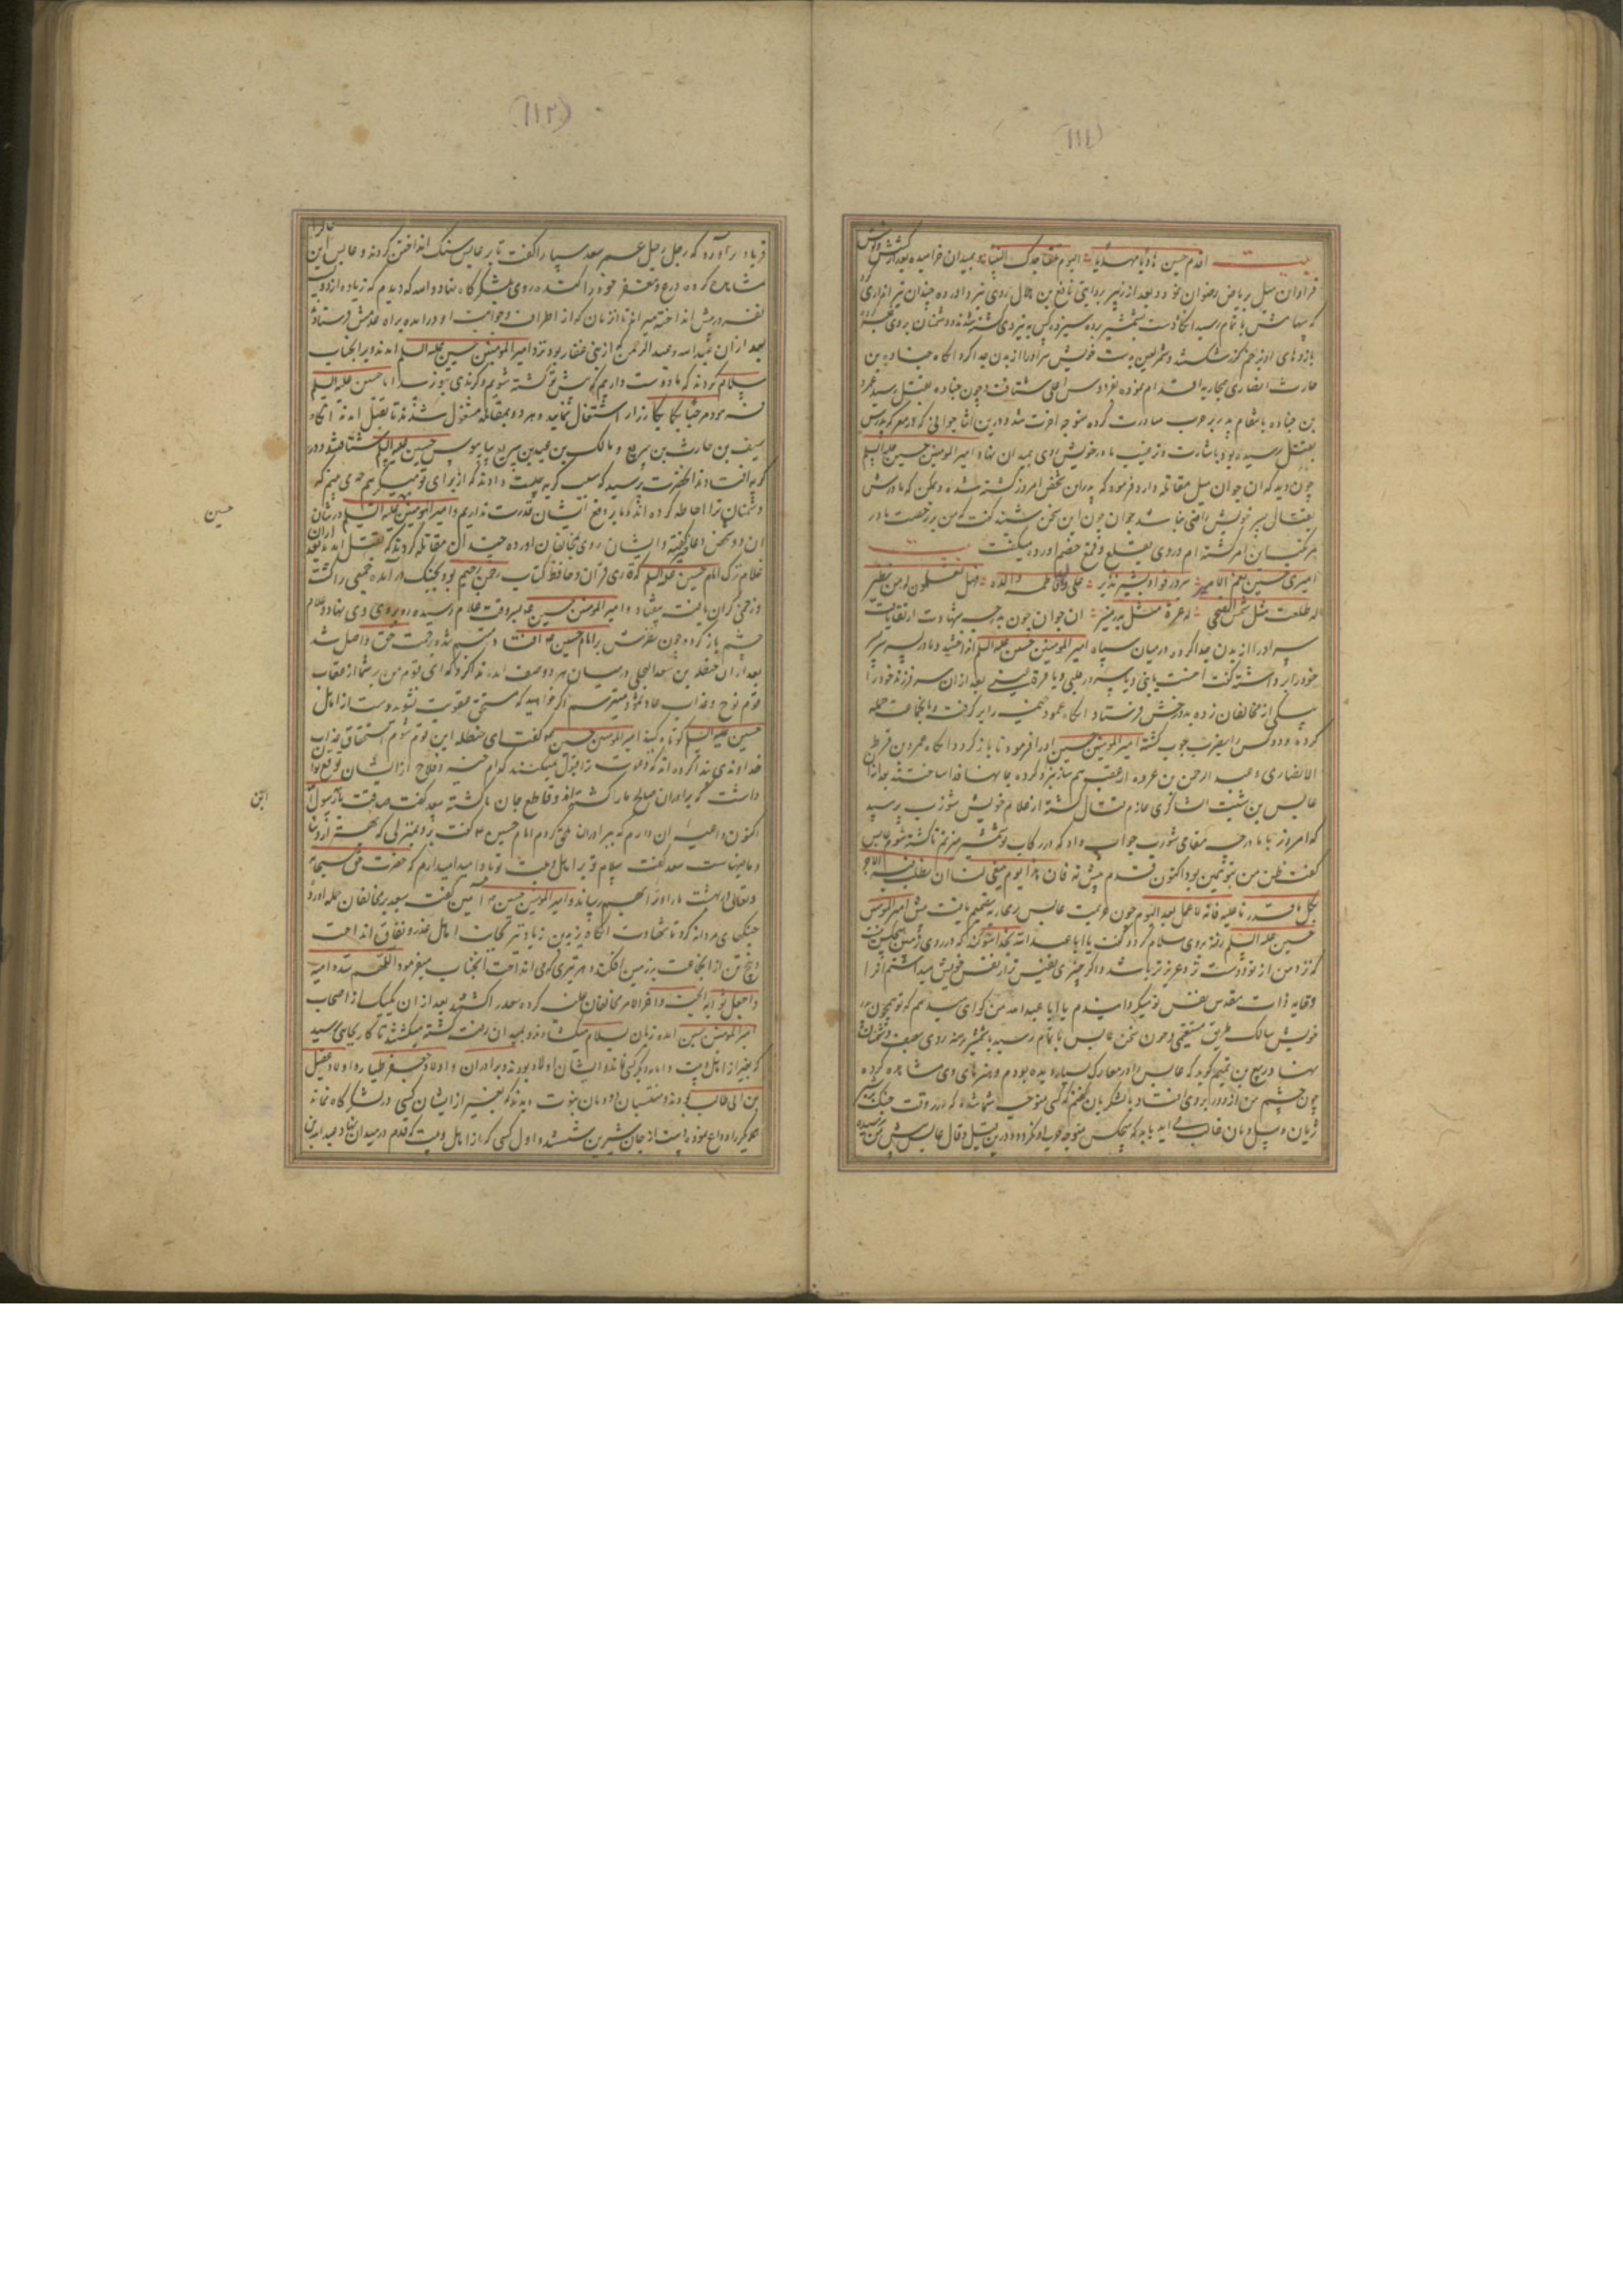 (١١١)
بیت اقدم حسین هادیا مهدیا الیوم تلقا جدک النبیا و بمیدان خرامیده بعد از کشش و کوشش
فراوان میل ریاض رضوان نمود و بعد از زهیر بروایتی نافع بن هلال روی بنبرد آورده چندان تیر اندازی کرد
که سهامش باتمام رسید آنگاه دست بشمشیر برده سیزده کس به نیروی کشته شدند و دشمنان بروی غلبه
بازوهای او بزخم گرز شکستند و شمر لعین بدست خویش سر او را از بدن جدا کرد و آنگاه جناده بن
حارث انصاری بمحاربه اقدام نموده بفردوس اعلی شتافت و چون جناده بقتل رسید عمرو
بن جناده بانتقام پدر بر حرب مبادرت کرده متوجه آخرت شد و درین اثنا جوانی که در معرکه پدرش
بقتل رسیده بود باشارت و ترغیب مادر خویش روی بمیدان نهاد امیرالمؤمنین حسین علیه السلم
چون دید که آن جوان میل مقاتله دارد فرمود که پدر این شخص امروز کشته شده و ممکن که مادرش
بقتال پسر خویش راضی نباشد جوان چون این سخن شنید گفت که من برخصت مادر
مرتکب این امر گشته ام و روی بقلع و قمع خصم آورده میگفت بیت
امیری حسین نعم الامیر سرور فواد بشیر نذیر علی و فاطمه والده فهل تعلمون له من نظیر
له طلعت مثل شمس الضحی له غرة مثل بدر منیر آن جوان چون بدرجه شهادت ارتقا یافت
سر او را از بدن جدا کرده در میان سپاه امیرالمؤمنین حسین علیه السلم انداختند و مادر پسر سر
خود را برداشته گفت احسنت یا بنی و یا سرور قلبی و یا قرة عینی بعد از آن سر فرزند خود را
بر یکی از مخالفان زده بدوزخش فرستاد آنگاه عمود خیمه را بر گرفت و بانجماعت حمله
کرده و دو کس را بضرب چوب کشته امیرالمؤمنین حسین او را فرمود تا باز گردد آنگاه عمرو بن قرظه
الانصاری و عبد الرحمن بن عروه از عقب هم ساز نبرد کرده جانها فدا ساختند بعد از آن
عابس بن شبیب الشاکری عازم قتال گشته از غلام خویش شوذب پرسید
که امروز با ما در چه مقامی شوذب جواب داد که در رکاب تو شمشیر میزنم تا کشته شوم عابس
گفت ظن من بتو همین بود اکنون قدم پیش نه فان هذا یوم ینبغی لنا ان نطلب فیه الاجر
بکل ما قدرنا علیه فانه لا عمل بعد الیوم چون عزیمت عابس بمحاربه تصمیم یافت پیش امیرالمومنین
حسین علیه السلم رفته بروی سلام کرد و گفت یا ابا عبد الله بخدا سوگند که در روی زمین هیچکس نیست
که نزد من از تو دوست تر و عزیزتر باشد و اگر چیزی نفیس تر از نفس خویش میداشتم آنرا
وقایه ذات مقدس نفس تو میگردانیدم یا ابا عبد الله من گواهی میدهم که تو همچون پدر
خویش سالک طریق مستقیمی و چون سخن عابس باتمام رسید با شمشیر برهنه روی بصف دشمنان
نهاد ربیع بن تمیم گوید که عابس را در معارک بسیار دیده بودم و هنرهای وی مشاهده کرده
چون چشم من از دور بروی افتاد با لشکریان گفتم که کسی متوجه شما شده که در وقت جنگ بر شیر
ژیان و پیل دمان غالب می آید باید که هیچکس متوجه حرب او نگردد و درین قیل و قال عابس پیش من رسید
(١١٢)
فریاد بر آورد که رجل رجل عمر سعد سپاه را گفت تا بر عابس سنگ انداختن کردند و عابس این حال را
مشاهده کرده درع و مغفر خود را کنده روی بلشکرگاه نهاد و الله که دیدم که زیاده از دویست
نفر در پیش انداخته میراند تا آن زمان که از اطراف و جوانب او در آمده براه عدمش فرستادند
بعد از آن عبد الله و عبد الرحمن که از بنی غفار بودند نزد امیرالمؤمنین حسین علیه السلم آمدند و بر آنجناب
سلام کردند که ما دوست داریم که پیش تو کشته شویم و گزندی بتو نرسد امام حسین علیه السلم
فرمود مرحبا بکما بکارزار اشتغال نمایید و هر دو بمقاتله مشغول شدند تا بقتل آمدند آنگاه
سیف بن حارث بن سریع و مالک بن عبد بن سریع بپابوس حسین علیه السلم شتافتند و در
گریه افتادند آنحضرت پرسید که سبب گریه چیست دادند که از برای تو میگرییم چه می بینیم که
دشمنان ترا احاطه کرده اند و ما بر دفع ایشان قدرت نداریم و امیرالمؤمنین علیه السلم در شان
آن دو سخن دعا گفته و ایشان روی بمخالفان آورده چندان مقاتله کردند که بقتل آمدند بعد از آن
غلام ترک امام حسین علیه السلم که قاری قرآن و حافظ کتاب رحمن رحیم بود بجنگ در آمده جمعی را کشت
و زخمی گران یافت بیفتاد و امیرالمؤمنین حسین علیه السلم بوقت غلام رسیده رو بروی وی نهاد و غلام
چشم باز کرده چون نظرش بر امام حسین افتاد متبسم شد و برحمت حق واصل شد
بعد از آن حنظله بن سعد العجلی در میان هر دو صف آمده ندا کرد که ای قوم من بر شما از عقاب
قوم نوح و عذاب عاد و ثمود میترسم اگر خواهید که مستحق عقوبت نشوید دست از اهل
حسین علیه السلم کوتاه کنید امیرالمومنین حسین گفت ای حنظله این قوم شوم استحقاق عذاب
خداوندی پیدا کرده اند که دعوت ترا قبول نمیکنند کدام خیر و فلاح از ایشان توقع توان
داشت که برادران صالح ما را کشته اند و قاطع جان ما گشته سعد گفت صدقت یا بن رسول الله
اکنون داعیه آن دارم که ببرادران ملحق گردم امام حسین گفت برو بمنزلی که بهتر از دنیا
و ما فیهاست سعد گفت سلام بر تو و بر اهل بیت تو باد امید میدارم که حضرت حق سبحانه
و تعالی در بهشت ما را و ترا بهم رساند و امیرالمومنین حسین آمین گفت سعد بر مخالفان حمله آورد
جنگهای مردانه کرد تا شهادت یافت آنگاه یزید بن زیاد تیر بجانب اهل غدر و نفاق انداخت
و پنج تن از آنجماعت بر زمین افکند و هر تیری که می انداخت آنجناب میفرمود اللهم سدد رمیه
و اجعل ثوابه الجنة و آخر الامر مخالفان حمله کرده سعد را کشتند بعد از آن یک یک از اصحاب
امیرالمومنین حسین آمده زبان بسلام میگشادند و بمیدان رفته کشته میگشتند تا کار بجایی رسید
که بغیر از اهل بیت و امامزاده دیگر کسی نماند و ایشان اولاد بودند و برادران و اولاد جعفر طیار و اولاد عقیل
بن ابی طالب بودند و منتسبان دودمان نبوت دیدند که بغیر از ایشان کسی در لشکرگاه نمانده
یکدیگر را وداع نموده دست از جان شیرین شستند و اول کسی که از اهل بیت قدم در میدان نهاد عبد الله بن
حسین
الجن